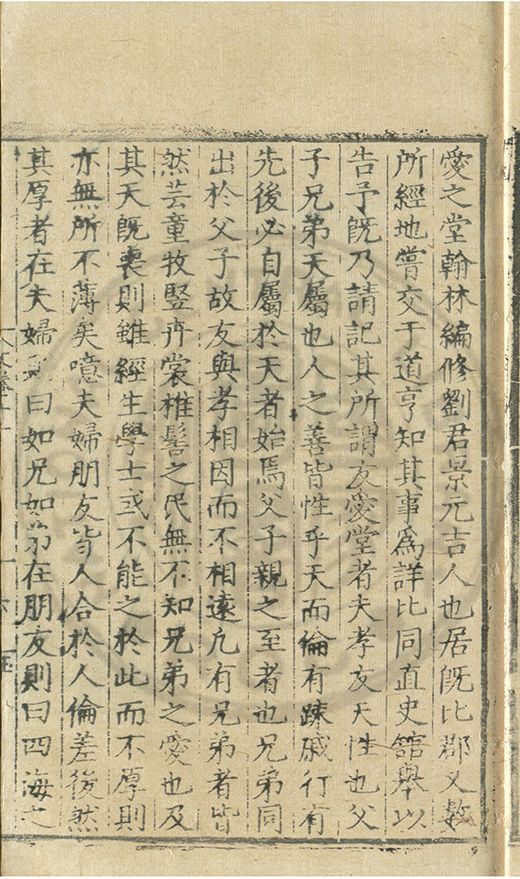 愛之堂翰林編修劉君景元吉人也居既比郡又數
所經地嘗交于道亨知其事為詳比同直史館舉以
告予既乃請記其所謂友愛堂者夫孝友天性也父
子兄弟天屬也人之善皆性乎天而倫有踈戚行有
先後必自屬於天者始焉父子親之至者也兄弟同
出於父子故友與孝相因而不相遠凡有兄弟者皆
然芸童牧竪卉裳椎髻之民無不知兄弟之愛也及
其天既喪則雖經生學士或不能之於此而不厚則
亦無所不薄矣噫夫婦朋友皆人合於人倫差後然
其厚者在夫婦則曰如兄如弟在朋友則曰四海之